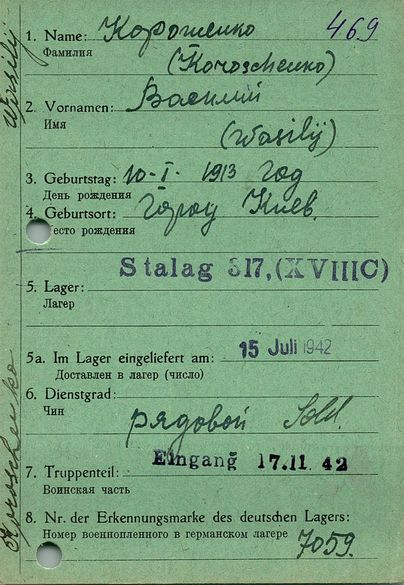 469
1. Name: Корошенко
Фамилия
(Koroschenko)
2. Vornamen: Василий
Имя
(Wasilij)
3. Geburtstag: 10-I. 1913 год
День рождения
4. Geburtsort: Город Киев.
есто рождения
Stalag 317, (XVIIIC)
5. Lager:
Лагер
5a. Im Lager eingeliefert am: 15 Juli 1942
Доставлен в лагер (число)
6. Dienstgrad:
Чин
рядовой Sold.
Eingang 17.11.42
7. Truppenteil:
Воинская часть
8. Nr. der Erkennungsmarke des deutschen Lagers:
Номер военнопленного в германском лагере 7059.
Koroschenko
Wasilij